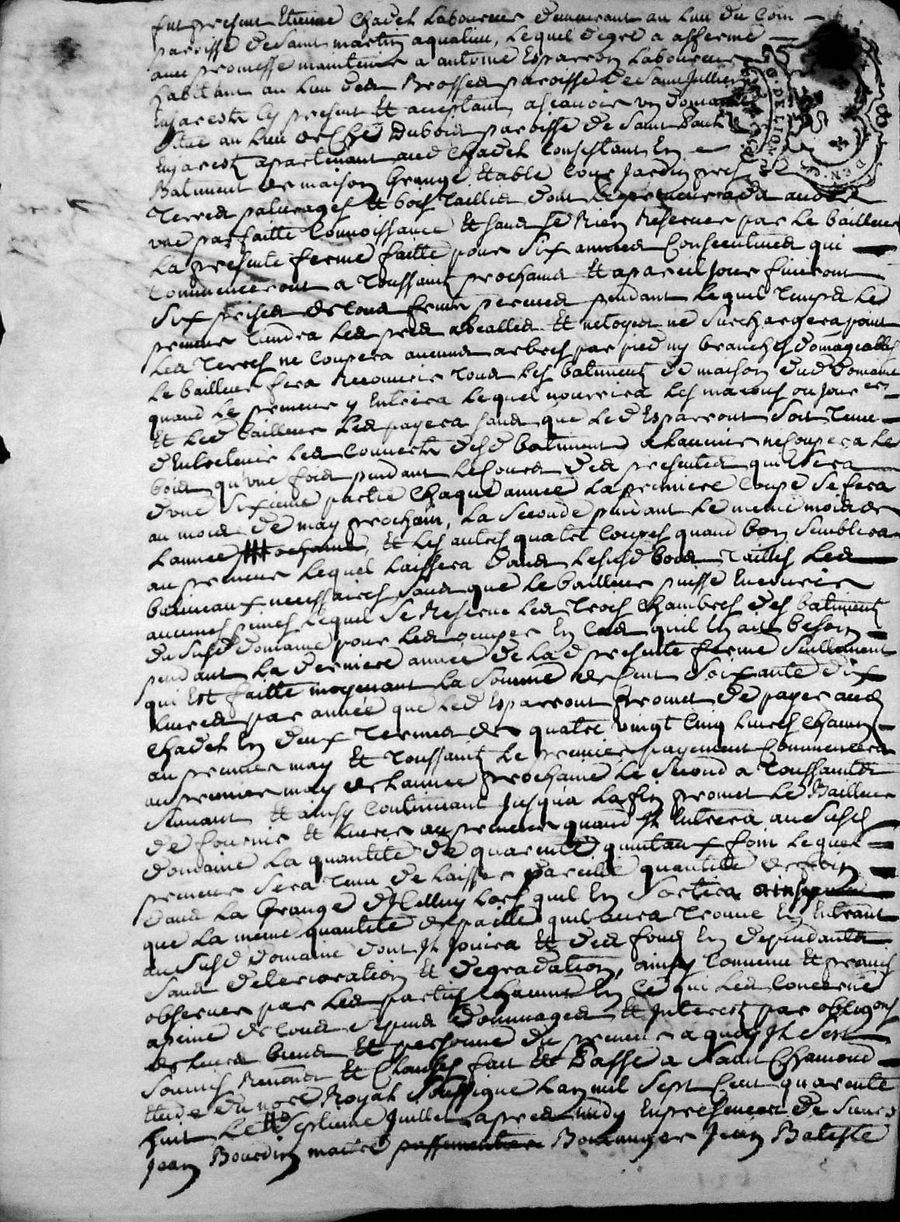 fut present Etienne Chadel Laboureur demeurant au lieu du Com
paroisse de Saint martin aqualieu, Lequel degre a afferme
avec promesse maintenir a antoine Esparron Laboureur
habitant au lieu des Brosses paroisse de Saint Jullien
Enjarest Cy present Et aceptant, ascavoir un domaine
situe au lieu de Ché Dubois paroisse de Saint Paul
Enjarest apartenant aud Chadel Consistant En
Batiment de maison Grange Etable Cour Jardin pres
Terres paturages Et bois Taillis dont Le preneur a dit avoir
une parfaitte Connoissance Et sans se Rien Reserver par Le bailleur
La presente ferme faitte pour Six années Consecutives qui
Commenceront a Toussaint prochains Et a pareil jour finiront
Six prises de tous fruits perceus pendant Lequel Temps Led
preneur Tiendra Les prés Et netoyes ne Surchargera point
Les Terres ne Coupera aucuns arbres par pied ny branches domageables
Le bailleur fera Recouvrir Tous Les batiments de maison dud domaine
quand Le preneur y Entrera Lequel nourrira Les macons ou
Et Led bailleur Les payera sans que Led Esparront Soit Tenu
d'Entretenir Les Couverts desd batiments ne Coupera Le
bois qu'une fois pendant Le Cours des presentes qui Sera
d'une Sixieme partie Chaque année La premiere Coupe Se fera
au mois de may prochain, La Seconde pendant Le meme mois de
L'année, Et Les autres quatre Coupes quand bon Semblera
au preneur Lequel Laissera dans Lesusd bois Taillis Les
baliveaux necessaires sans que Le bailleur puisse
Lequel Se Reserve Les Trois Chambres des batiments
du Susd domaine pour Les occuper En Cas quil En ait besoin
pendant La derniere année de Lad presente ferme Seullement
qui Est faitte moyenant La Somme de Cent Soixante dix
Livres par année que Led Esparront promet de payer aud
Chadel En deux Termes de quatre vingt Cinq Livres Chacun
au premier may Et Toussaint Le premier payement Commencera
au premier may de L'année prochaine Le Second a Toussaint
Suivant Et ainsy Continuant Jusqu'a La fin promet Le Bailleur
de fournir Et Livrer au preneur quand Jl Entrera au Susd
domaine La quantité de quarente quintaux foin Lequel
preneur Sera Tenu de Laisser pareille quantité de foin
dans La Grange d'Icelluy Lors quil En Sortira
que La meme quantité de paille quil aura Trouve En Entrant
au Susd domaine dont Jl Jouira Et des fonds En dependants
Sans deterioration Et degradation, ainsy Convenu Et promis
observer par Les parties Chacune En Ce qui Les Concerne
a peine de tous depens dommages Et Interest par obligons
de Leurs biens Et personne du preneur a quoy Jl Sest
Soumis Renoncé Et Clauses fait Et Passé a Saint Chamond
Etude du nore Royal Soussigne L'an mil Sept Cent quarente
huit Le Septieme Juillet apres midy En presences de Sieurs
Jean Bourdin maitre Boulanger Jean Batiste
G. DE LION